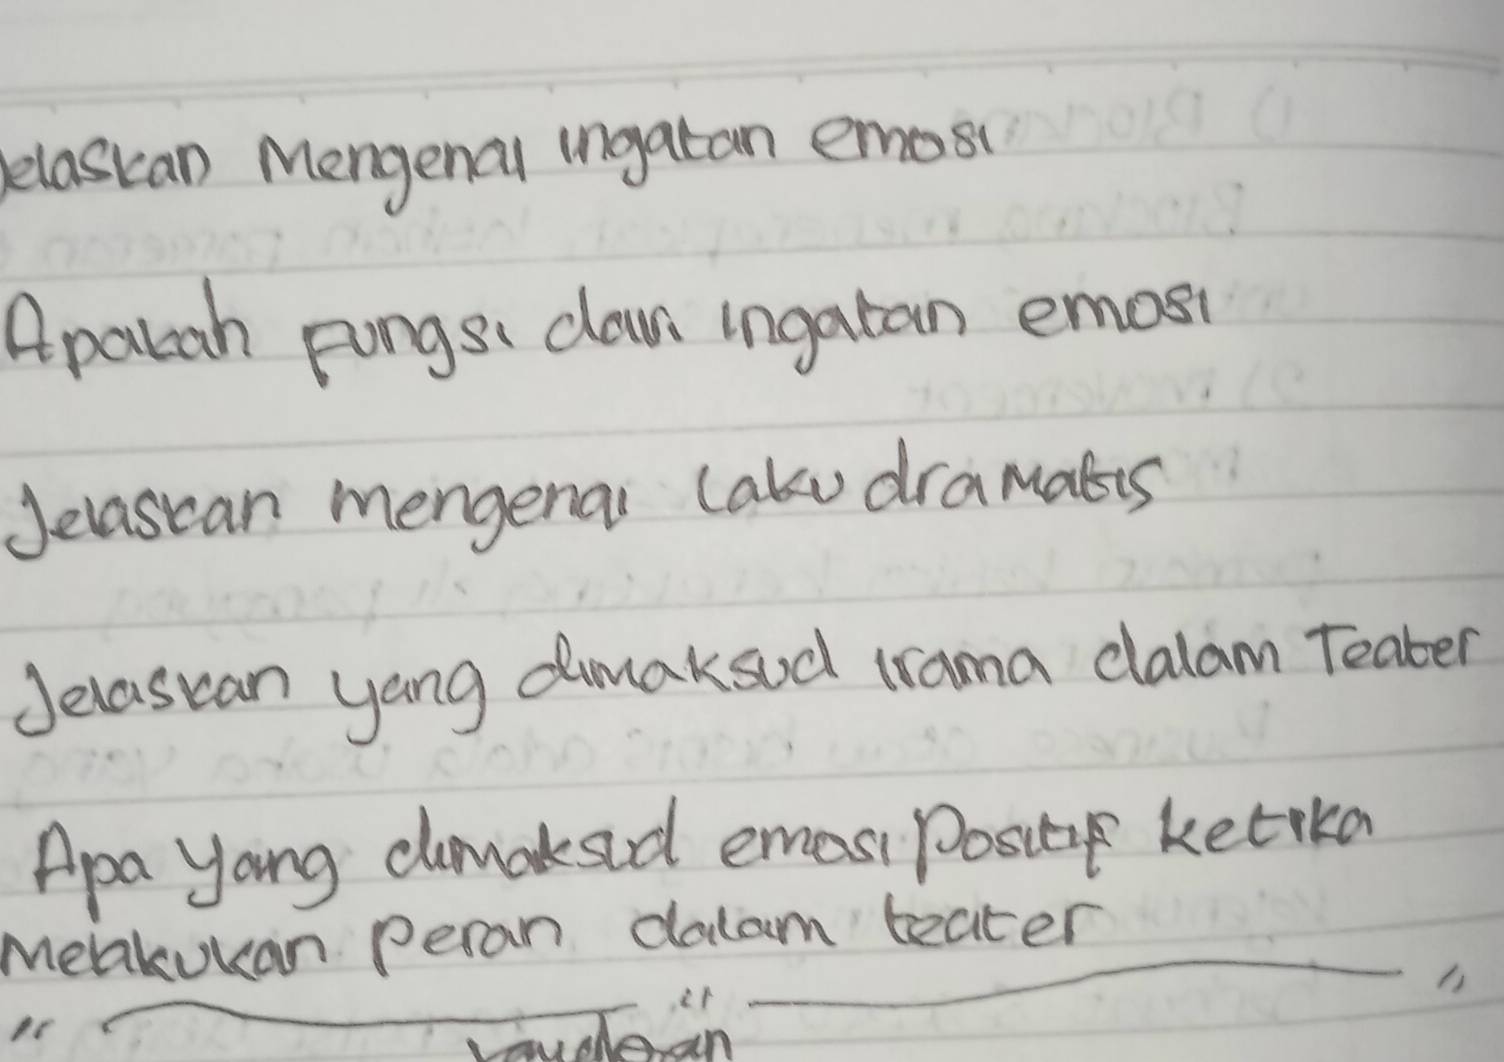 Jelaskan Mengenai ingatan emosi
Apakah Fungsi dari ingatan emosi
Jelaskan mengenai laku dramatis
Jelaskan yang dimaksud irama dalam Teater
Apa yang dimaksud emosi Positif ketika
Melakukan Peran dalam teater